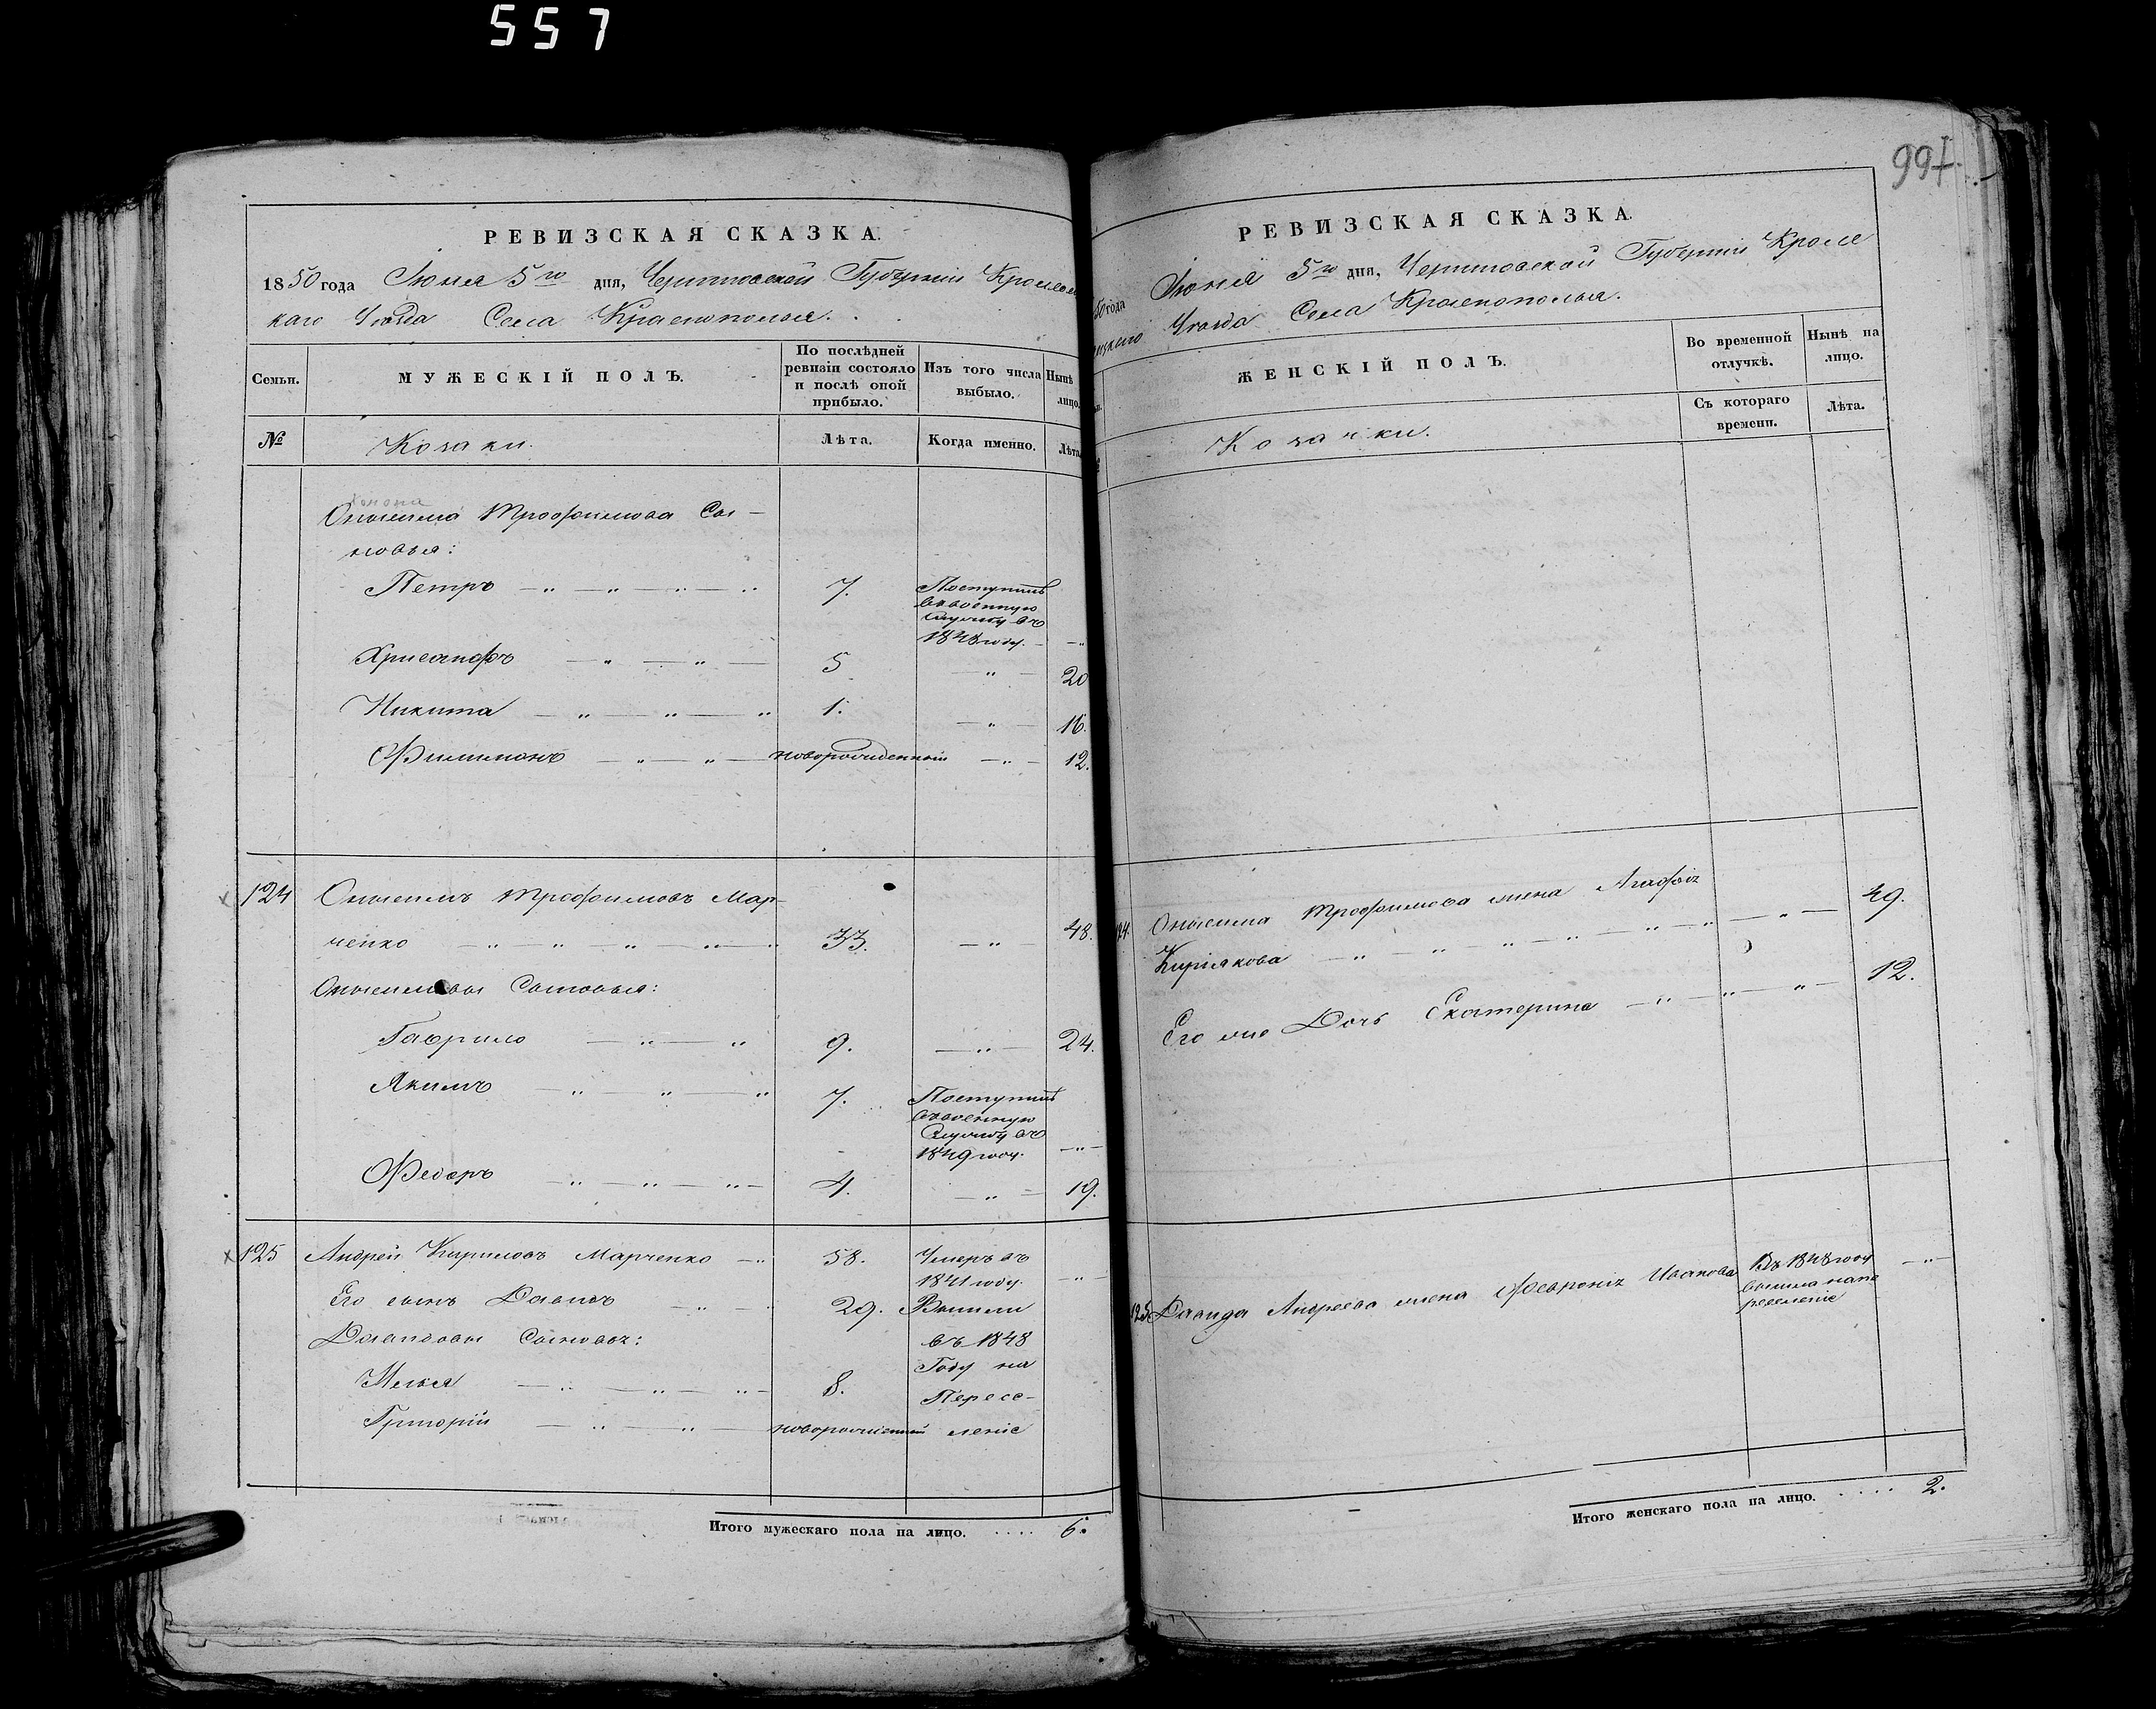 557
РЕВИЗСКАЯ СКАЗКА.
1850 года Іюня 5го дня, Черниговской Губерніи Кролевец
каго Уѣзда Села Краснополья.
Семьи.
МУЖЕСКІЙ ПОЛЪ.
По послѣдней ревизіи состояло и послѣ оной прибыло.
Изъ того числа выбыло.
Нынѣ лицо.
№
Козаки.
Лѣта.
Когда именно.
Лѣта
Онисима Трофимова Сы-
новья:
Петръ 7. Поступилъ
въ военную
службу въ
1848 году.
Хрисанфъ 5 20
Никита 1. 16.
Филимонъ новорожденный 12.
124 Онисимъ Трофимовъ Мар-
ченко 33. 48.
Онисимовы Сыновья:
Гаврило 9. 24.
Якимъ 7. Поступилъ
въ военную
Службу въ
1849 году.
Федоръ 4. 19.
125 Андрей Кириловъ Марченко 58. Умеръ въ
1841 году.
Его сынъ Давидъ 29. Вышли
Давидовы Сыновья: въ 1848
Году на
Илья 8. Пересе-
Григорій новорожденный леніе
Итого мужескаго пола на лицо. .... 6.
997.
РЕВИЗСКАЯ СКАЗКА.
50 года Іюня 5го дня, Черниговской Губерніи Кроле
вецкаго Уѣзда Села Краснополья.
ЖЕНСКІЙ ПОЛЪ.
Во временной отлучкѣ.
Нынѣ на лицо.
Козачки.
Съ котораго времени.
Лѣта.
124. Онисима Трофимова жена Агафія
Киріякова 49.
Его же Дочь Екатерина 12.
125 Давида Андреева жена Февронія Иванова Въ 1848 году
вышла на пе
реселеніе
Итого женскаго пола на лицо. .... 2.